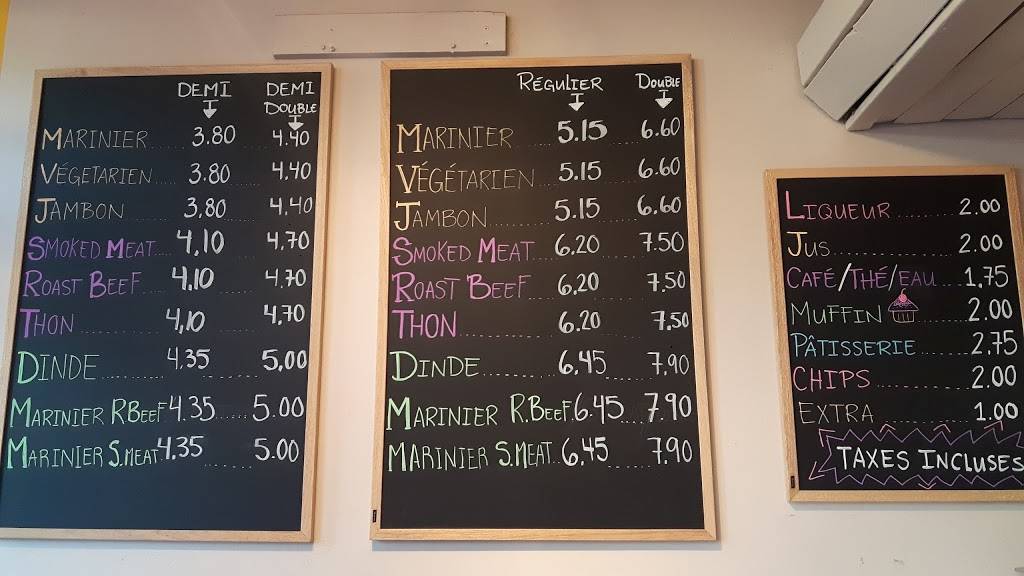 DEMI DEMI DOUBLE
MARINIER 3.80 4.40
VÉGETARIEN 3.80 4.40
JAMBON 3.80 4.40
SMOKED MEAT 4.10 4.70
ROAST BEEF 4.10 4.70
THON 4.10 4.70
DINDE 4.35 5.00
MARINIER R.BEEF 4.35 5.00
MARINIER S.MEAT 4.35 5.00
RÉGULIER DOUBLE
MARINIER 5.15 6.60
VÉGÉTARIEN 5.15 6.60
JAMBON 5.15 6.60
SMOKED MEAT 6.20 7.50
ROAST BEEF 6.20 7.50
THON 6.20 7.50
DINDE 6.45 7.90
MARINIER R.BEEF 6.45 7.90
MARINIER S.MEAT 6.45 7.90
LIQUEUR 2.00
JUS 2.00
CAFÉ/THÉ/EAU 1.75
MUFFIN 2.00
PÂTISSERIE 2.75
CHIPS 2.00
EXTRA 1.00
TAXES INCLUSES